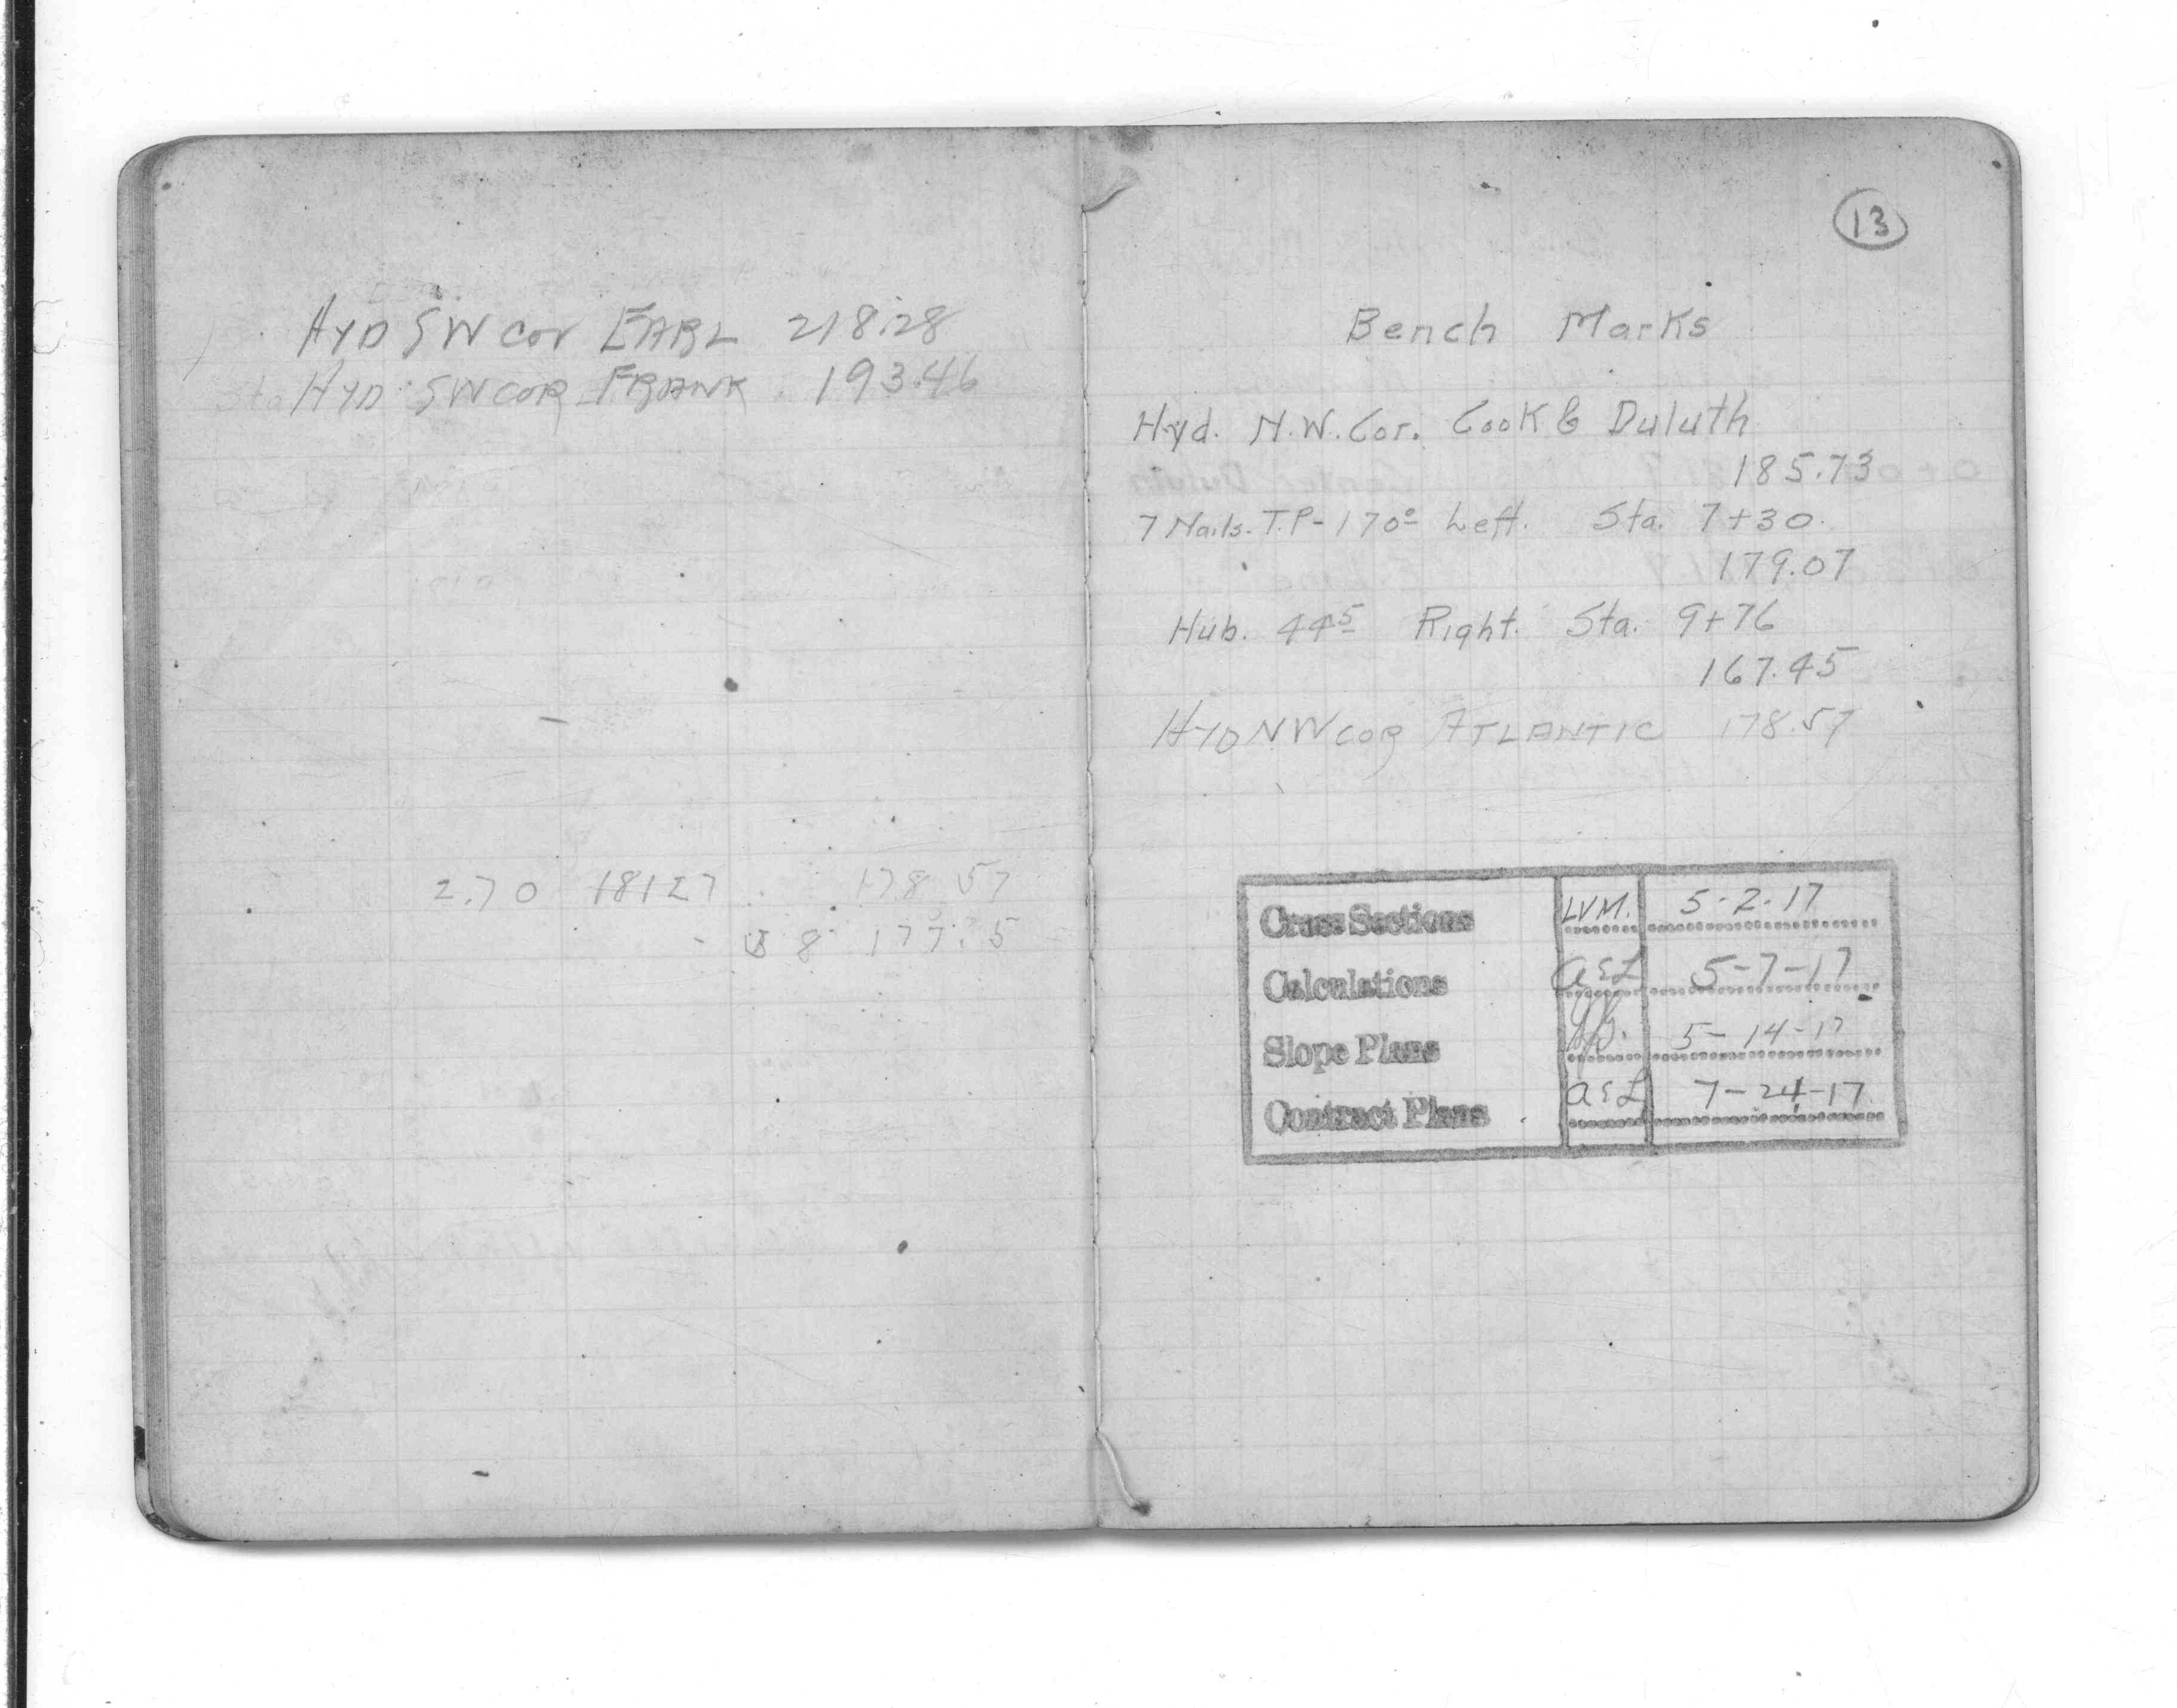 HYD SW cor EARL 218.28
HYD SW COR FRANK 193.46
2.70 181 27 178 57
3 8 177.5
13
Bench Marks
Hyd. N.W. Cor. Cook & Duluth
185.73
7 Nails. T.P - 17 0° Left. Sta. 7+30.
179.07
Hub. 44 5 Right. Sta. 9+76
167.45
HYD NW COR ATLANTIC 178.57
Cross Sections LVM. 5-2-17
Calculations a&L 5-7-17
Slope Plans 5-14-17
Contract Plans a&L 7-24-17